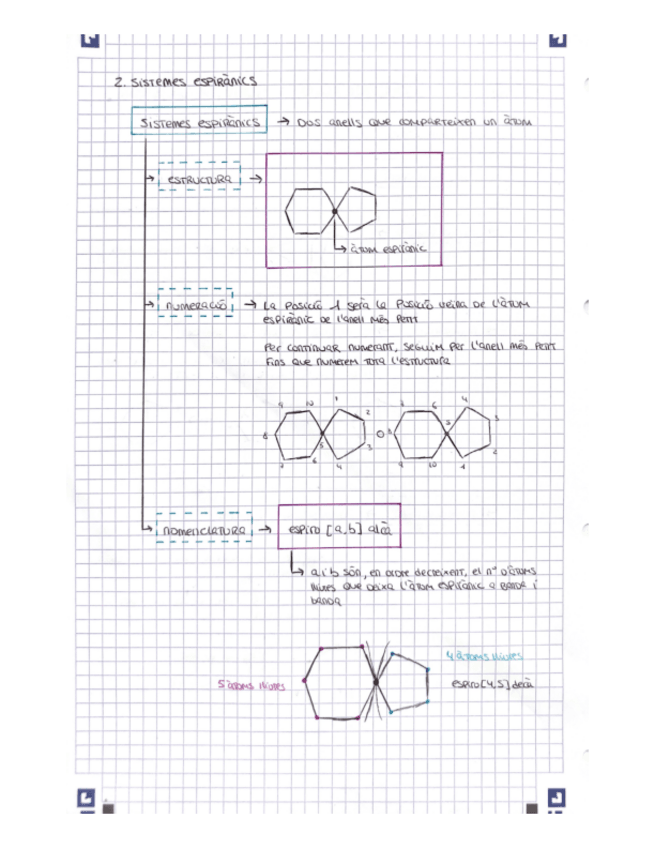 2. SISTEMES ESPIRÀNICS
SISTEMES ESPIRÀNICS → DOS anells que comparteixen un àtom
ESTRUCTURA →
àtom espirànic
NUMERACIÓ → La posició 1 serà la posició veïna de l'àtom
espirànic de l'anell més petit
Per continuar numerant, seguim per l'anell més petit
fins que numerem tota l'estructura
9 10 1 2 3 4 5 6 7 8
O
6 4 3 2 1 10 9 8
NOMENCLATURA → espiro [a,b] alcà
a i b són, en ordre decreixent, el nº d'àtoms
lliures que deixa l'àtom espirànic a banda i
banda
4 àtoms lliures
5 àtoms lliures
espiro[4,5]decà